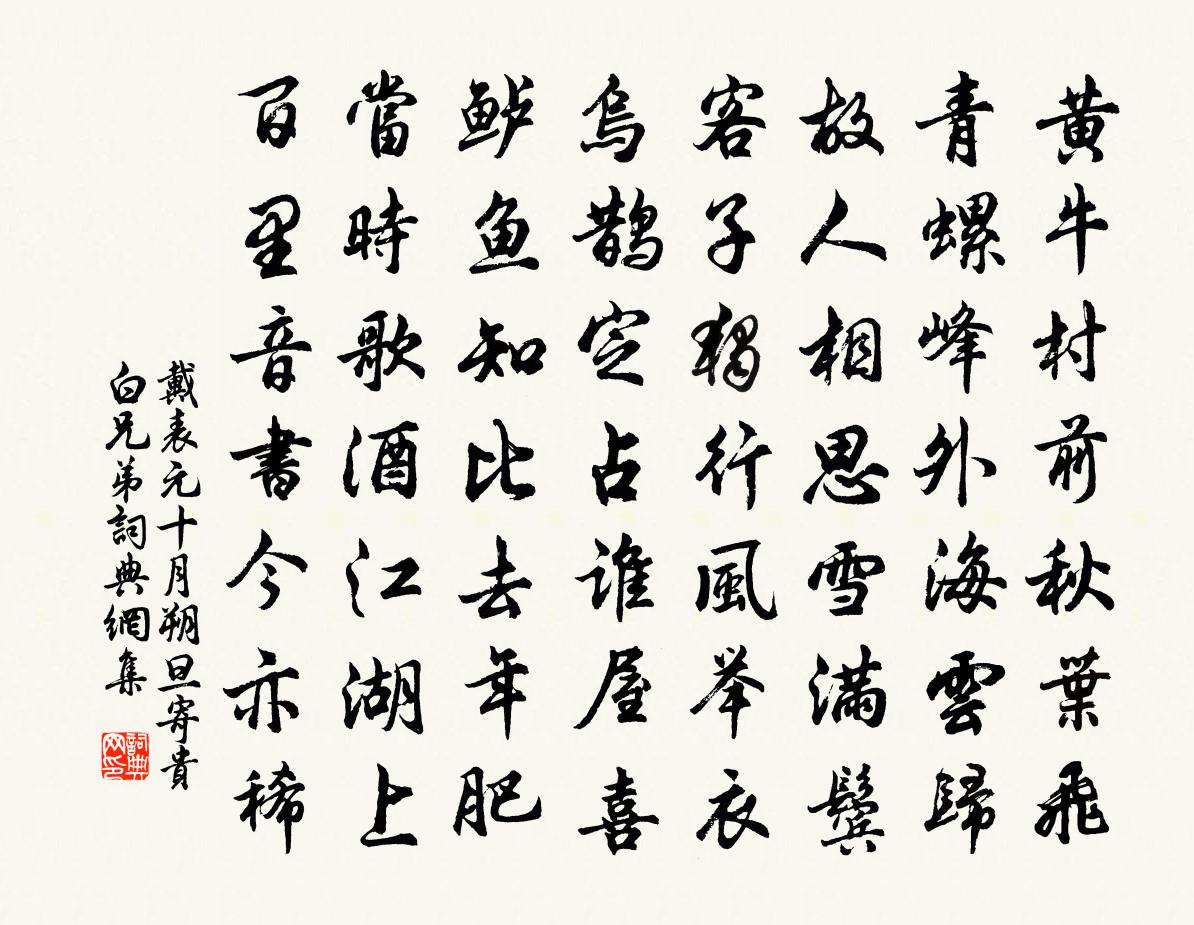 黄牛村前秋葉飛
青螺峰外海雲歸
故人相思雪滿鬓
客子獨行風举衣
烏鵲定占誰屋喜
鲈鱼知比去年肥
當時歌酒江湖上
百里音書今亦稀
戴表元十月朔旦寄貴
白兄弟詞典網集
詞典
网印